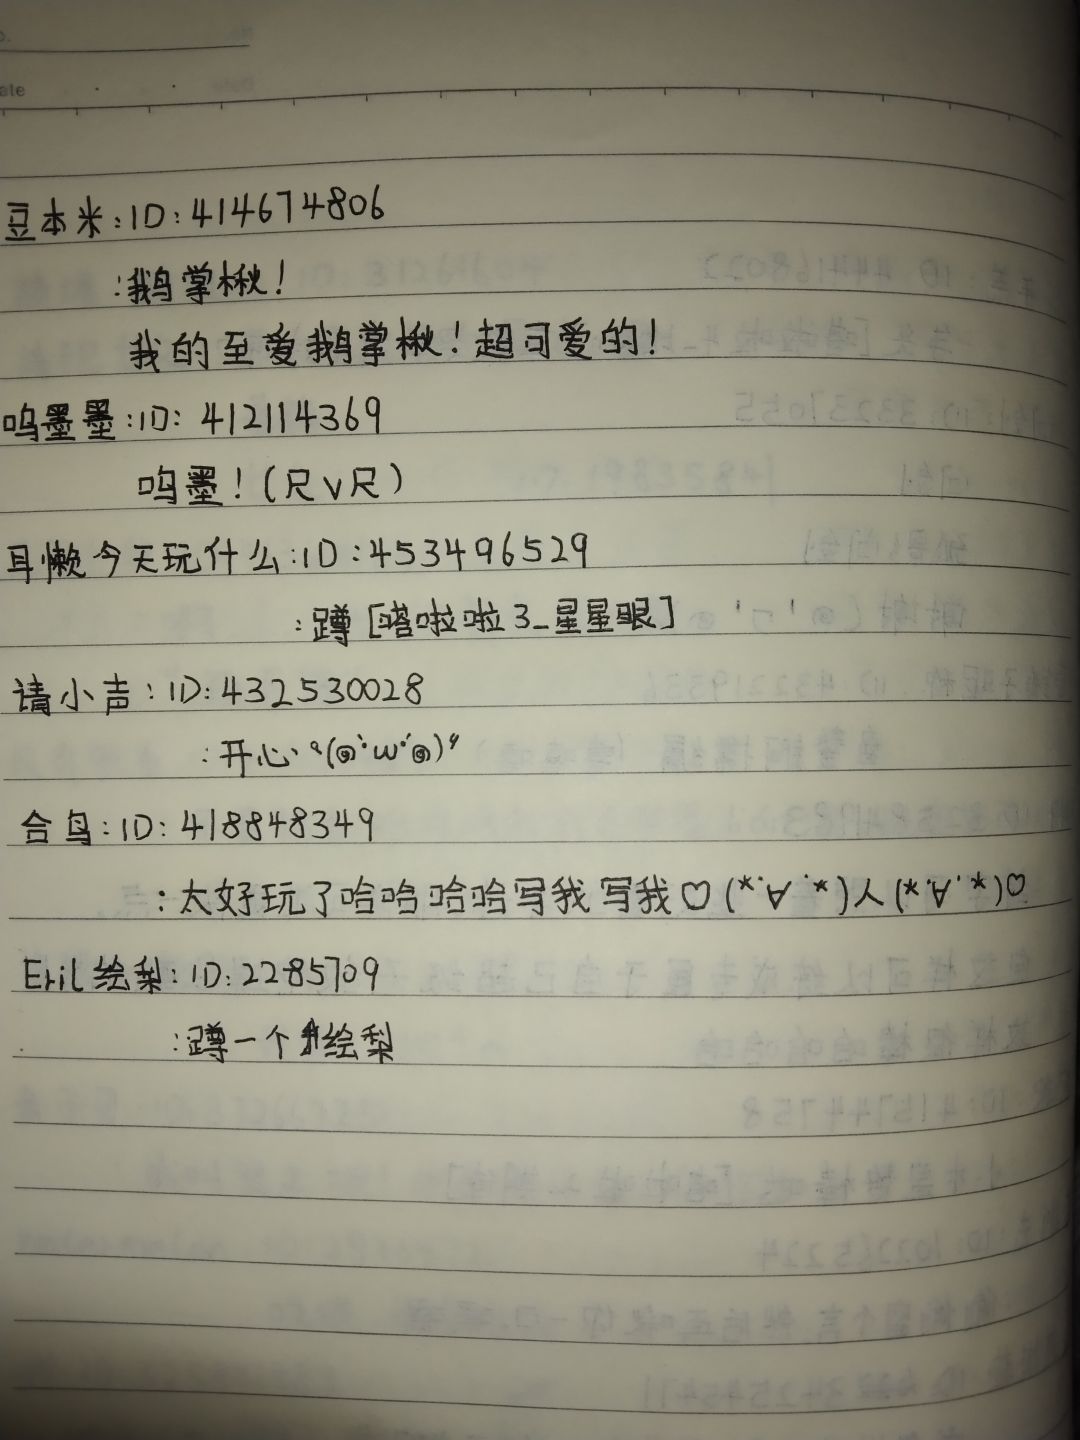 豆本米:ID:414674806
:鹅掌楸!
我的至爱鹅掌楸!超可爱的!
鸣墨墨:ID: 412114369
鸣墨!(尺v尺)
耳懒今天玩什么:ID:453496529
:蹲[嗒啦啦3_星星眼]
请小声:ID:432530028
:开心
合鸟:ID:418848349
:太好玩了哈哈哈哈写我写我♡(*.∀.*)人(*.∀.*)♡
Eril绘梨:ID:2285709
:蹲一个绘梨